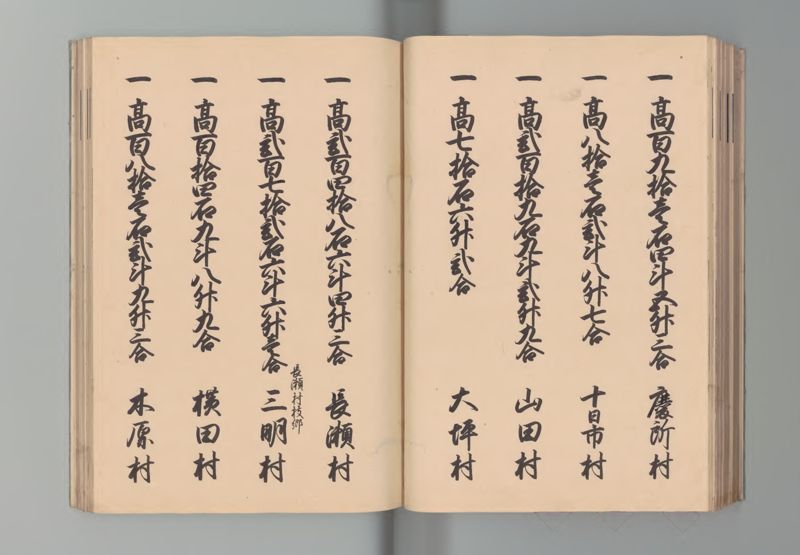 一 高百九拾壱石四斗五升三合 慶所村
一 高八拾壱石弐斗八升七合 十日市村
一 高弐百拾九石九斗弐升九合 山田村
一 高七拾石六升弐合 大坪村
一 高弐百四拾八石六斗四升三合 長瀬村
長瀬村枝郷
一 高弐百七拾弐石六斗六升壱合 三明村
一 高百拾四石九斗八升九合 横田村
一 高百八拾壱石弐斗九升三合 木原村